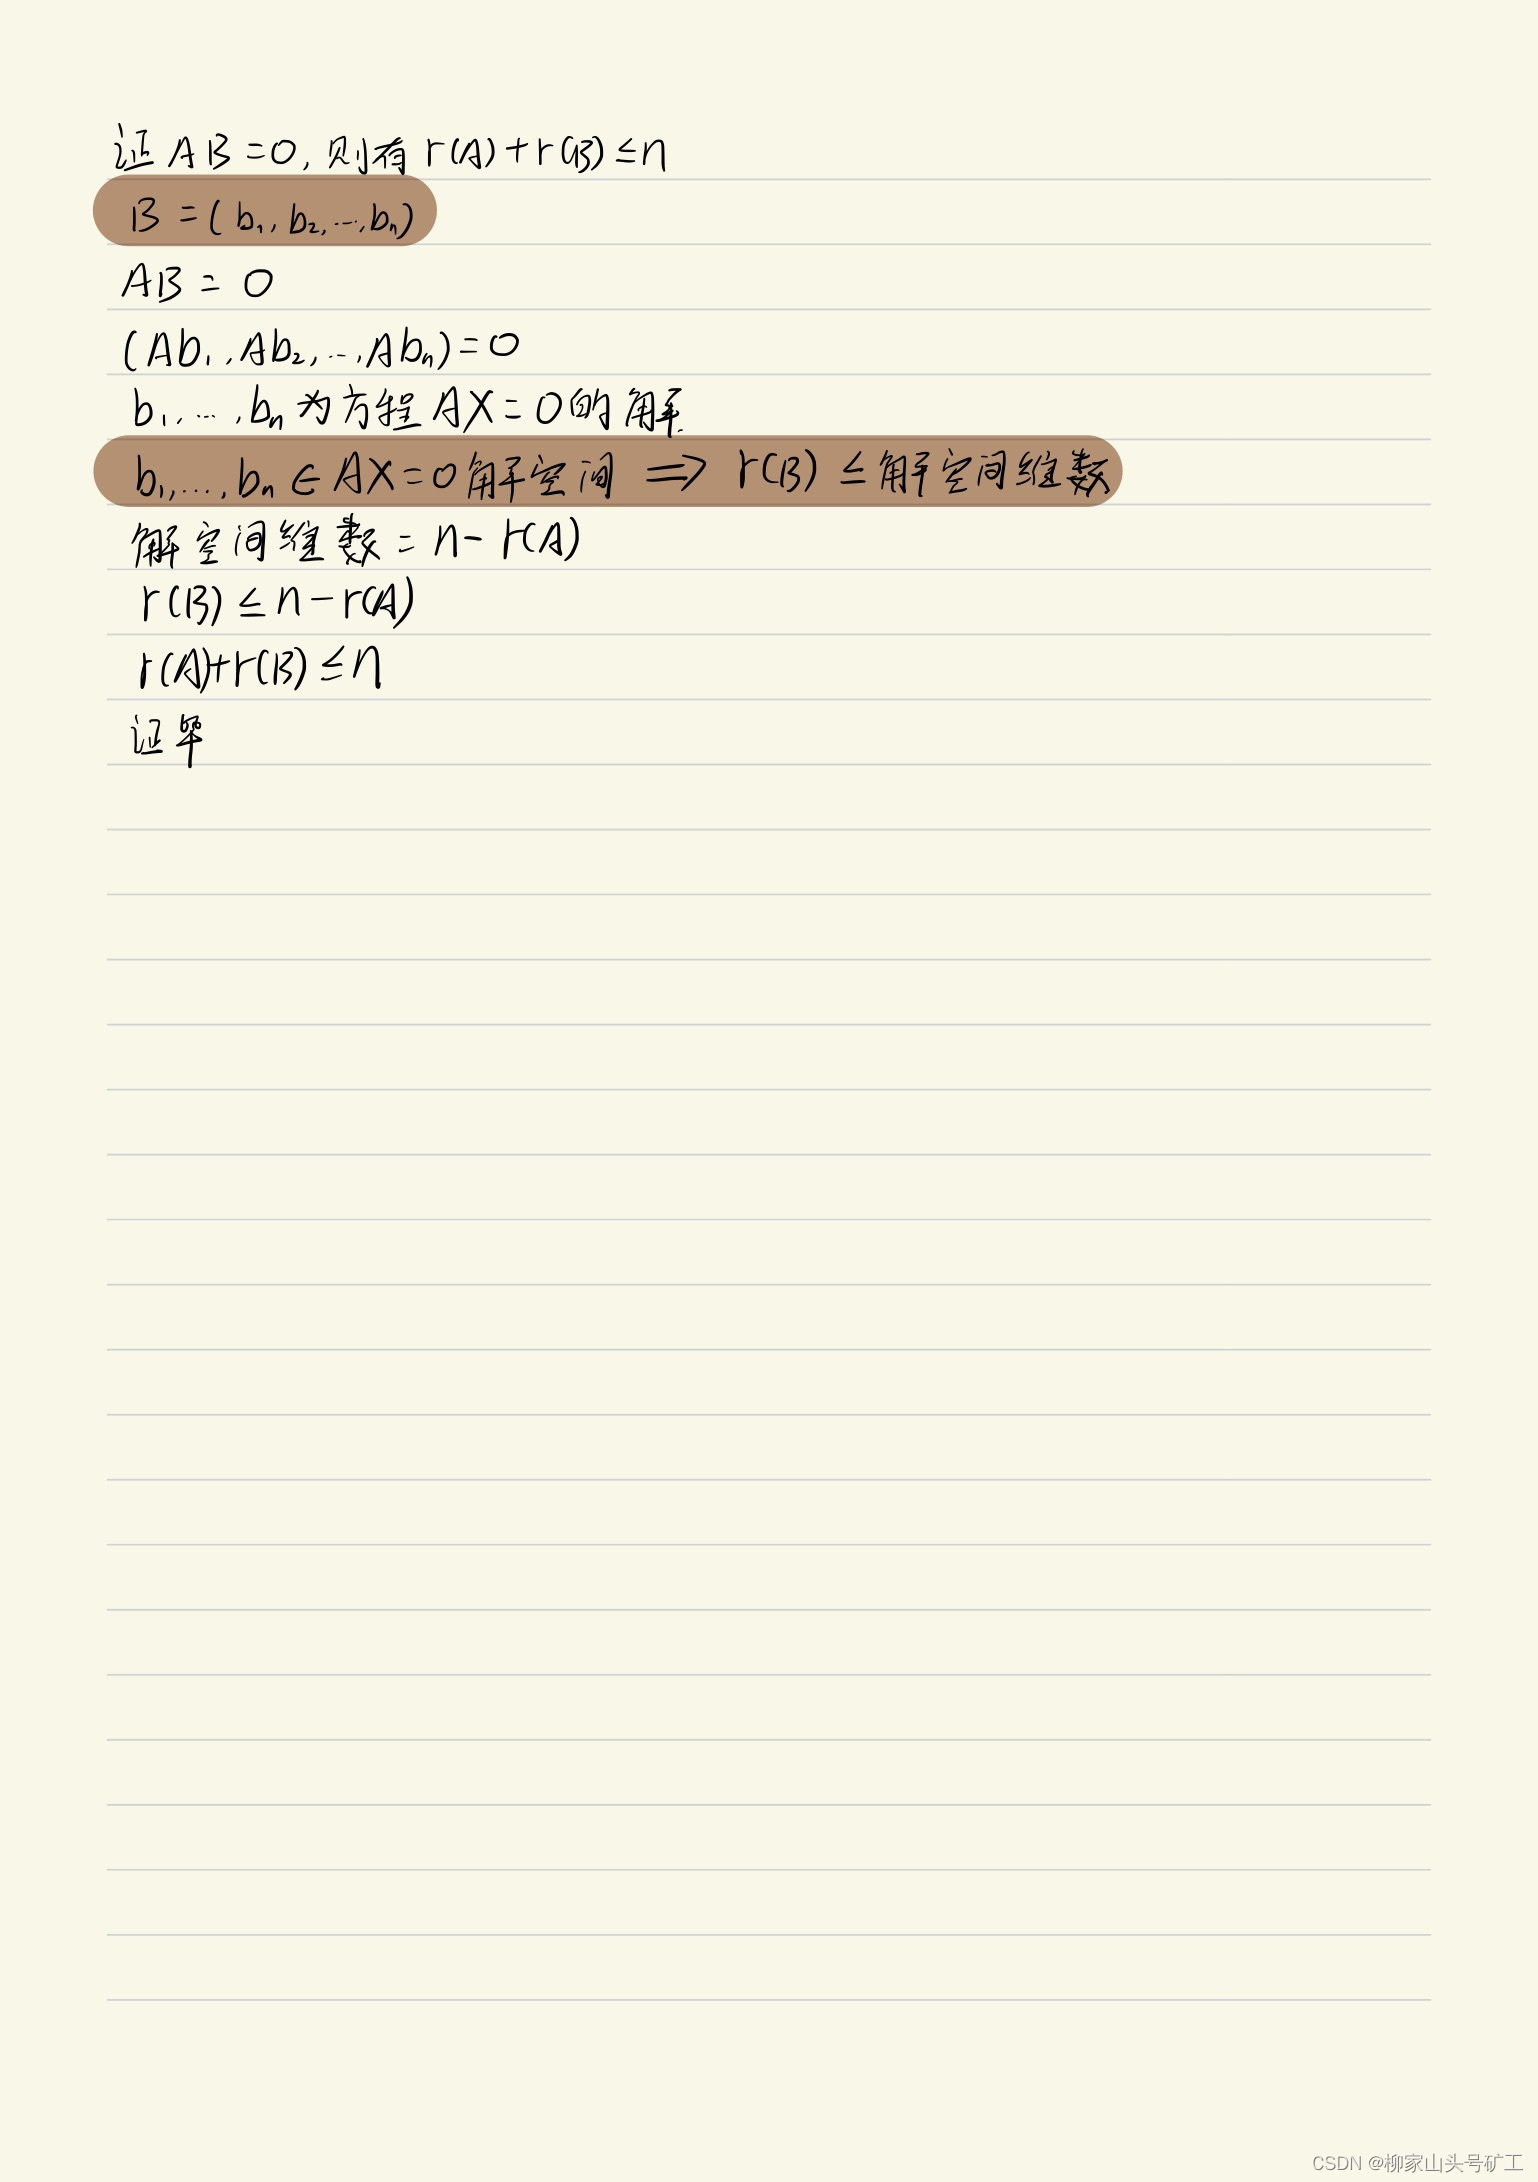 证 AB=0, 则有 r(A)+r(B)≤n
B=(b₁, b₂, ..., bₙ)
AB = 0
(Ab₁, Ab₂, ..., Abₙ)=0
b₁, ..., bₙ 为方程 AX=0的解
b₁, ..., bₙ ∈ AX=0解空间 ⇒ r(B) ≤解空间维数
解空间维数 = n- r(A)
r(B) ≤ n-r(A)
r(A)+r(B) ≤n
证毕
CSDN @柳家山头号矿工